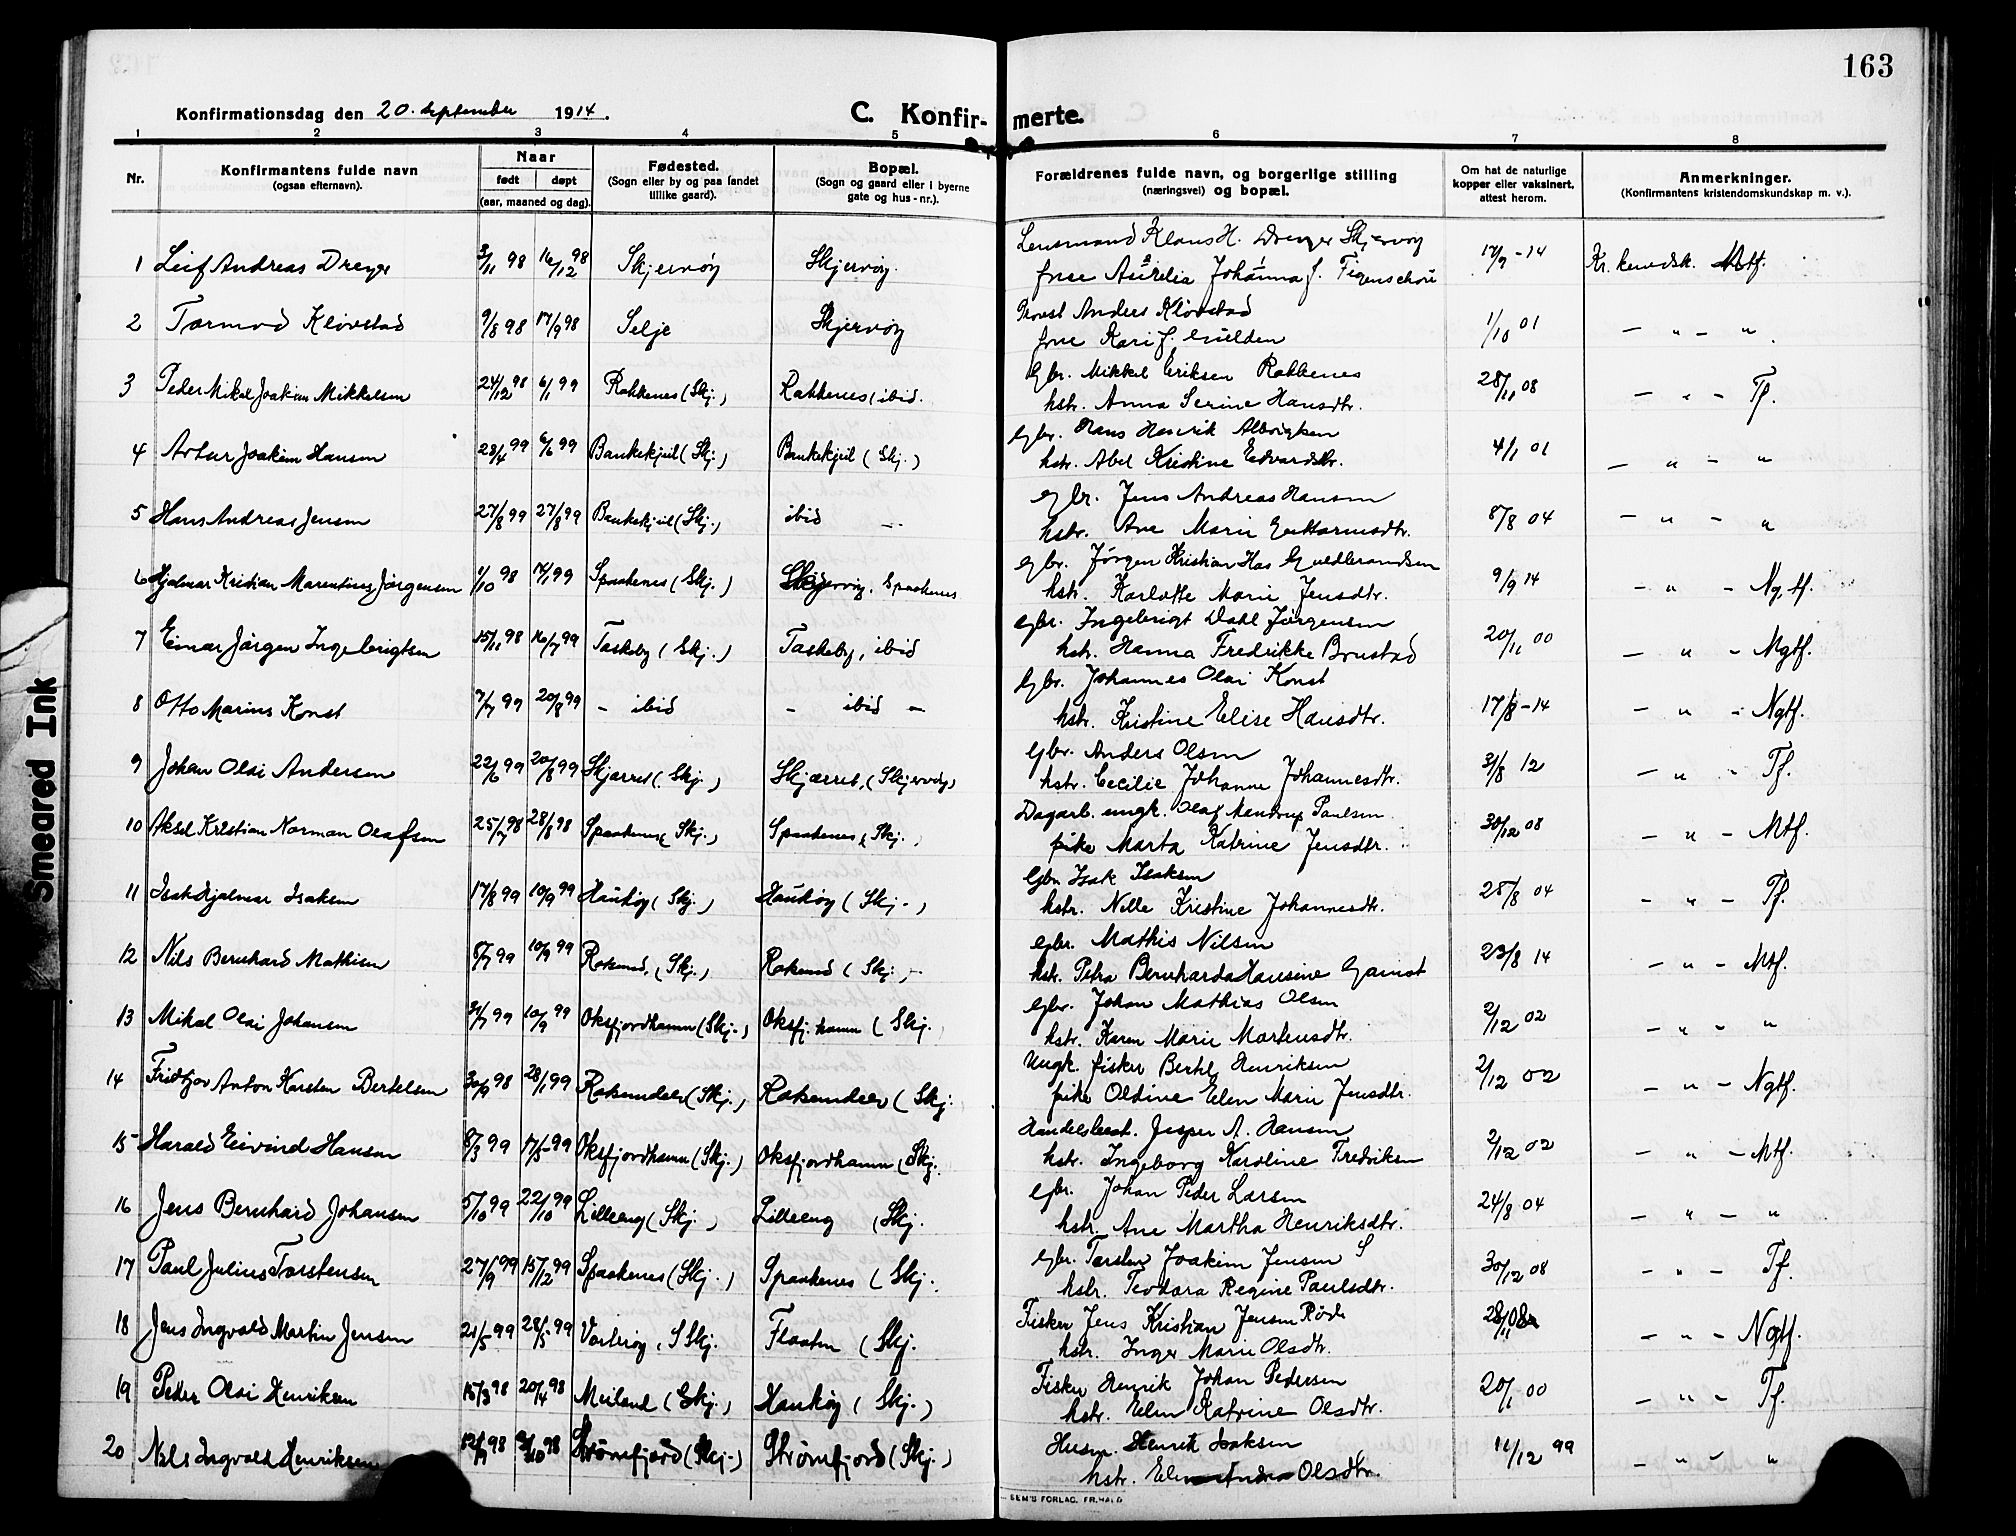 163
Konfirmationsdag den 20. september 1914.
C. Konfir- merte.
1 2 3 4 5 6 7 8
Nr.
Konfirmantens fulde navn
(ogsaa efternavn).
Naar
født døpt
(aar, maaned og dag).
Fødested.
(Sogn eller by og paa landet
tillike gaard).
Bopæl.
(Sogn og gaard eller i byerne
gate og hus-nr.).
Forældrenes fulde navn, og borgerlige stilling
(næringsvei) og bopæl.
Om hat de naturlige
kopper eller vaksinert,
attest herom.
Anmerkninger.
(Konfirmantens kristendomskundskap m. v.).
Lensmand Klaus H. Dreyer Skjervøy
1 Leif Andreas Dreyer 3/11 98 16/12 98 Skjervøy Skjervøy. frue Aurelia Johanna f. Figenschou 17/9-14 Kr. kundsk. Mtf.
Provst Anders Kløvstad
2 Tormod Kløvstad 9/8 98 17/9 98 Selje Skjervøy frue Kari f. Gulden 1/10 01 - " - "
Gbr. Mikkel Eriksen Rakkenes
3 Peder Mikal Joakim Mikkelsen 24/12 98 6/1 99 Rakkenes (Skj.) Rakkenes, ibid. hstr. Anna Serine Hansdtr. 28/11 08 - " - Tf.
Gbr. Hans Henrik Albrigtsen
4 Artur Joakim Hansen 28/4 99 6/6 99 Bankekjeil (Skj.) Bankekjeil (Skj.) hstr. Abel Kristine Edvardsdtr. 4/1 01 - " - "
gbr. Jens Andreas Hansen
5 Hans Andreas Jensen 27/8 99 27/8 99 Bankekjeil (Skj.) ibid - hstr. Ane Marie 8/8 04 - " - "
gbr. Jørgen Kristian Has Guldbrandsen
6 Hjalmar Kristian Marentius Jørgensen 1/10 98 99 Spaakenes (Skj.) Skjervøy, Spaakenes hstr. Karlotte Marie Jensdtr. 9/9 14 - " - Ng.tf.
gbr. Ingebrigt Dahl Jørgensen
7 Einar Jørgen Ingebrigtsen 15/11 98 16/7 99 Taskeby (Skj.) Taskeby, ibid hstr. Hanna Fredrikke Brustad 20/11 00 - " - Mgtf.
Gbr. Johannes Olai Konst
8 Otto Marius Konst 7/7 99 20/8 99 - ibid - ibid - hstr. Kristine Elise Hansdtr. 17/8-14 - " - Ngtf.
Gbr. Anders Olsen
9 Johan Olai Andersen 22/6 99 20/8 99 Skjærret (Skj.) Skjærret, (Skjervøy) hstr. Cecilie Johanne Johannesdtr. 31/8 12 - " - Tf.
Dagarb. ungk. Olaf Mendrup Paulsen
10 Aksel Kristian Norman Olafsen 25/7 98 28/8 98 Spaakenes (Skj.) Spaakenes (Skj. pike Marta Katrine Jensdtr. 30/12 08 - " - Mtf.
Gbr Isak Isaksen
11 Isak Hjalmar Isaksen 17/8 99 10/9 99 Haukøy (Skj.) Haukøy (Skj.) hstr. Nelle Kristine Johannesdtr. 28/8 04 - " - Tf.
gbr. Mathis Nilsen
12 Nils Bernhard Mathisen 8/7 99 10/9 99 Raksund, (Skj.) Raksund (Skj. hstr. Petra Bernharda Hansine Gamst 23/8 14 - " - Mtf.
gbr. Johan Mathias Olsen
13 Mikal Olai Johansen 31/7 99 10/9 99 Oksfjordhamn (Skj.) Oksfj. hamn (Skj. hstr. Karen Marie Martensdtr. 2/12 02 - " - "
Ungk. fisker Bertel Henriksen
14 Fridtjov Anton Karsten Bertelsen 30/9 98 28/1 99 Raksundelv (Skj.) Raksundelv (Skj. pike Oldine Elen Marie Jensdtr. 2/12 02 - " - Ngtf.
Handelsbest. Jesper A. Hansen
15 Harald Eivind Hansen 8/3 99 17/5 99 Oksfjordhamn (Skj.) Oksfjordhamn (Skj. hstr. Ingeborg Karoline Fredriksen 2/12 02 - " - Mtf.
gbr. Johan Peder Larsen
16 Jens Bernhard Johansen 5/10 99 22/10 99 Lilleeng (Skj.) Lilleeng (Skj. hstr. Ane Martha Henriksdtr. 24/8 04 - " - "
gbr. Torsten Joakim Jensen S
17 Paul Julius Torstensen 27/9 99 15/12 99 Spaakenes (Skj.) Spaakenes (Skj. hstr. Teodora Regine Paulsdtr. 30/12 08 - " - Tf.
Fisker Jens Kristian Jensen Røde
18 Jens Ingvald Martin Jensen 21/5 99 28/5 99 Vorterøy, S Skj. Flaaten (Skj. hstr. Inger Marie Olsdtr. 28/11 08 - " - Ngtf.
Fisker Henrik Johan Pedersen
19 Peder Olai Henriksen 15/3 98 20/4 98 Meiland (Skj.) Haukøy (Skj.) hstr. Elen Katrine Olsdtr. 20/1 00 - " - Tf.
Husm. Henrik Isaksen
20 Nils Ingvald Henriksen 98 98 Strømfjord (Skj.) Strømfjord (Skj.) hstr. Elen Andrea Olsdtr. 11/12 99 - " - "
SEM'S FORLAG, FR.HALD
Smeared Ink